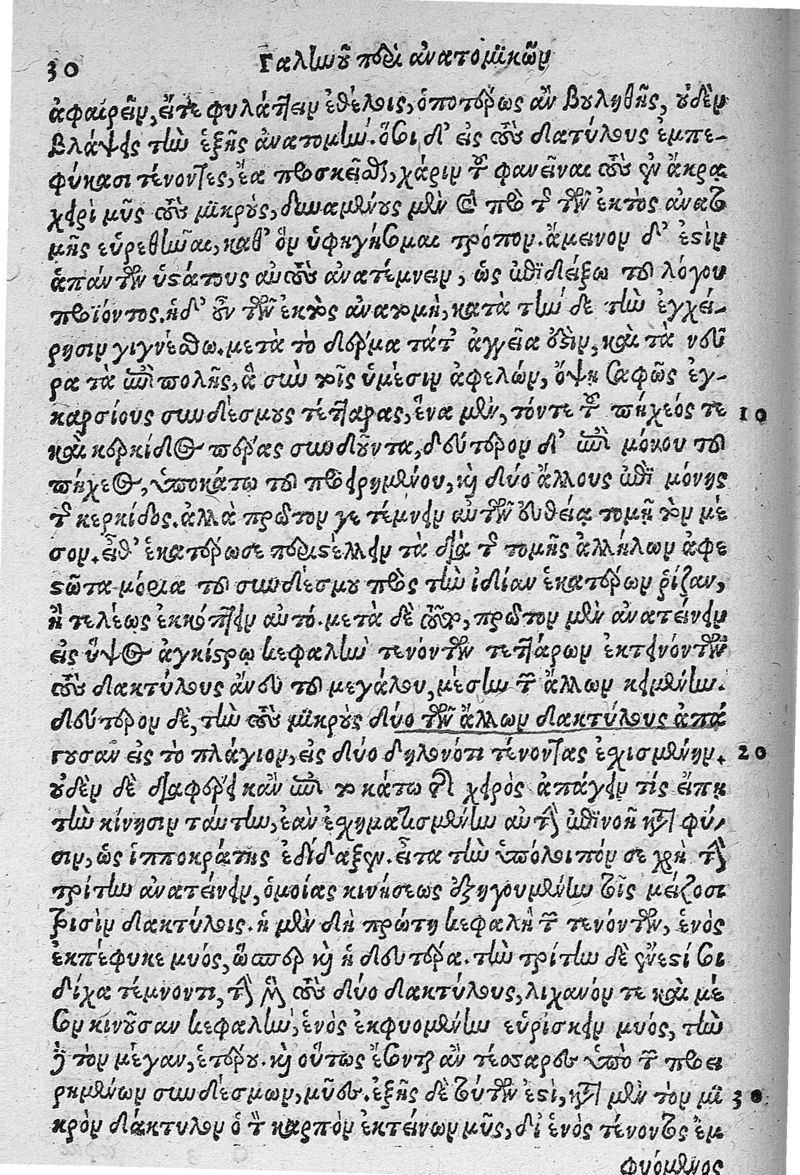 30 Γαληνοῦ περὶ ἀνατομικῶν
ἀφαιρεῖν, εἴτε φυλάττειν ἐθέλοις, ὁποτέρως ἂν βουληθῇς, οὐδὲν
βλάψεις τὴν ἑξῆς ἀνατομήν. ὅσοι δ' εἰς τοὺς δακτύλους ἐμπε-
φύκασι τένοντες, ἔα προσκεῖσθαι, χάριν τοῦ φανεῖναι τοὺς ἐν ἄκρᾳ
χειρὶ μῦς τοὺς μικρούς, δυναμένους μὲν καὶ πρὸ τῆς τῶν ἐκτὸς ἀνατο
μῆς εὑρεθῆναι, καθ' ὃν ὑφηγήσομαι τρόπον. ἄμεινον δ' ἐστὶν
ἁπάντων ὑστάτους αὐτοὺς ἀνατέμνειν, ὡς ἐπιδείξω τοῦ λόγου
προϊόντος. ἡ δ' οὖν τῶν ἐκτὸς ἀνατομὴ, κατὰ τήνδε τὴν ἐγχεί-
ρησιν γιγνέσθω. μετὰ τὸ δέρμα τά τ' ἀγγεῖα αἴρειν, καὶ τὰ νεῦ
ρα τὰ ἐπιπολῆς, ἃ σὺν τοῖς ὑμέσιν ἀφελὼν, ὄψῃ σαφῶς ἐγ-
καρσίους συνδέσμους τέτταρας, ἕνα μὲν, τόν τε τοῦ πήχεός τε 10
καὶ κερκίδος πέρας συνδοῦντα, δεύτερον δ' ἐπὶ μόνου τοῦ
πήχεος, ὑποκάτω τοῦ προειρημένου, καὶ δύο ἄλλους ἐπὶ μόνης
τῆς κερκίδος. ἀλλὰ πρῶτον γε τέμνειν αὐτῶν εὐθείᾳ τομῇ τὸν μέ
σον. εἶθ' ἑκατέρωσε περιστέλλειν τὰ διὰ τῆς τομῆς ἀλλήλων ἀφε
στῶτα μόρια τοῦ συνδέσμου πρὸς τὴν ἰδίαν ἑκατέρων ῥίζαν,
ἢ τελέως ἐκκόπτειν αὐτό. μετὰ δὲ τοῦτο, πρῶτον μὲν ἀνατείνειν
εἰς ὕψος ἀγκίστρῳ κεφαλὴν τενόντων τεττάρων ἐκτεινόντων
τοὺς δακτύλους ἄνευ τοῦ μεγάλου, μέσην τῶν ἄλλων κειμένην.
δεύτερον δὲ, τὴν τοὺς μικροὺς δύο τῶν ἄλλων δακτύλους ἀπά
γουσαν εἰς τὸ πλάγιον, εἰς δύο δηλονότι τένοντας ἐσχισμένην. 20
οὐδὲν δὲ διαφέρει κἂν ἐπὶ τὸ κάτω τῆς χειρὸς ἀπάγειν τίς εἴπῃ
τὴν κίνησιν ταύτην, ἐὰν ἐσχηματισμένην αὐτὴν ἐπινοῇ κατὰ φύ-
σιν, ὡς ἱπποκράτης ἐδίδαξεν. εἶτα τὴν ὑπόλοιπόν σε χρὴ τὴν
τρίτην ἀνατείνειν, ὁμοίας κινήσεως ἐξηγουμένην τοῖς μείζοσι
τρισὶν δακτύλοις. ἡ μὲν δὴ πρώτη κεφαλὴ τῶν τενόντων, ἑνὸς
ἐκπέφυκε μυός, ὥσπερ καὶ ἡ δευτέρα. τὴν τρίτην δὲ ἔνεστί σοι
δίχα τέμνοντι, τὴν μὲν τοὺς δύο δακτύλους, λιχανόν τε καὶ μέ
σον κινοῦσαν κεφαλὴν, ἑνὸς ἐκφυομένην εὑρίσκειν μυός, τὴν
δὲ τὸν μέγαν, ἑτέρου. καὶ οὕτως ἔσονται ἂν τέσσαρες ὑπὸ τῶν προει
ρημένων συνδέσμων, μῦες. ἑξῆς δὲ τούτων ἐστὶ, κατὰ μὲν τὸν μι 30
κρὸν δάκτυλον ὁ τὸν καρπὸν ἐκτείνων μῦς, δι' ἑνὸς τένοντος ἐμ
φυόμενος